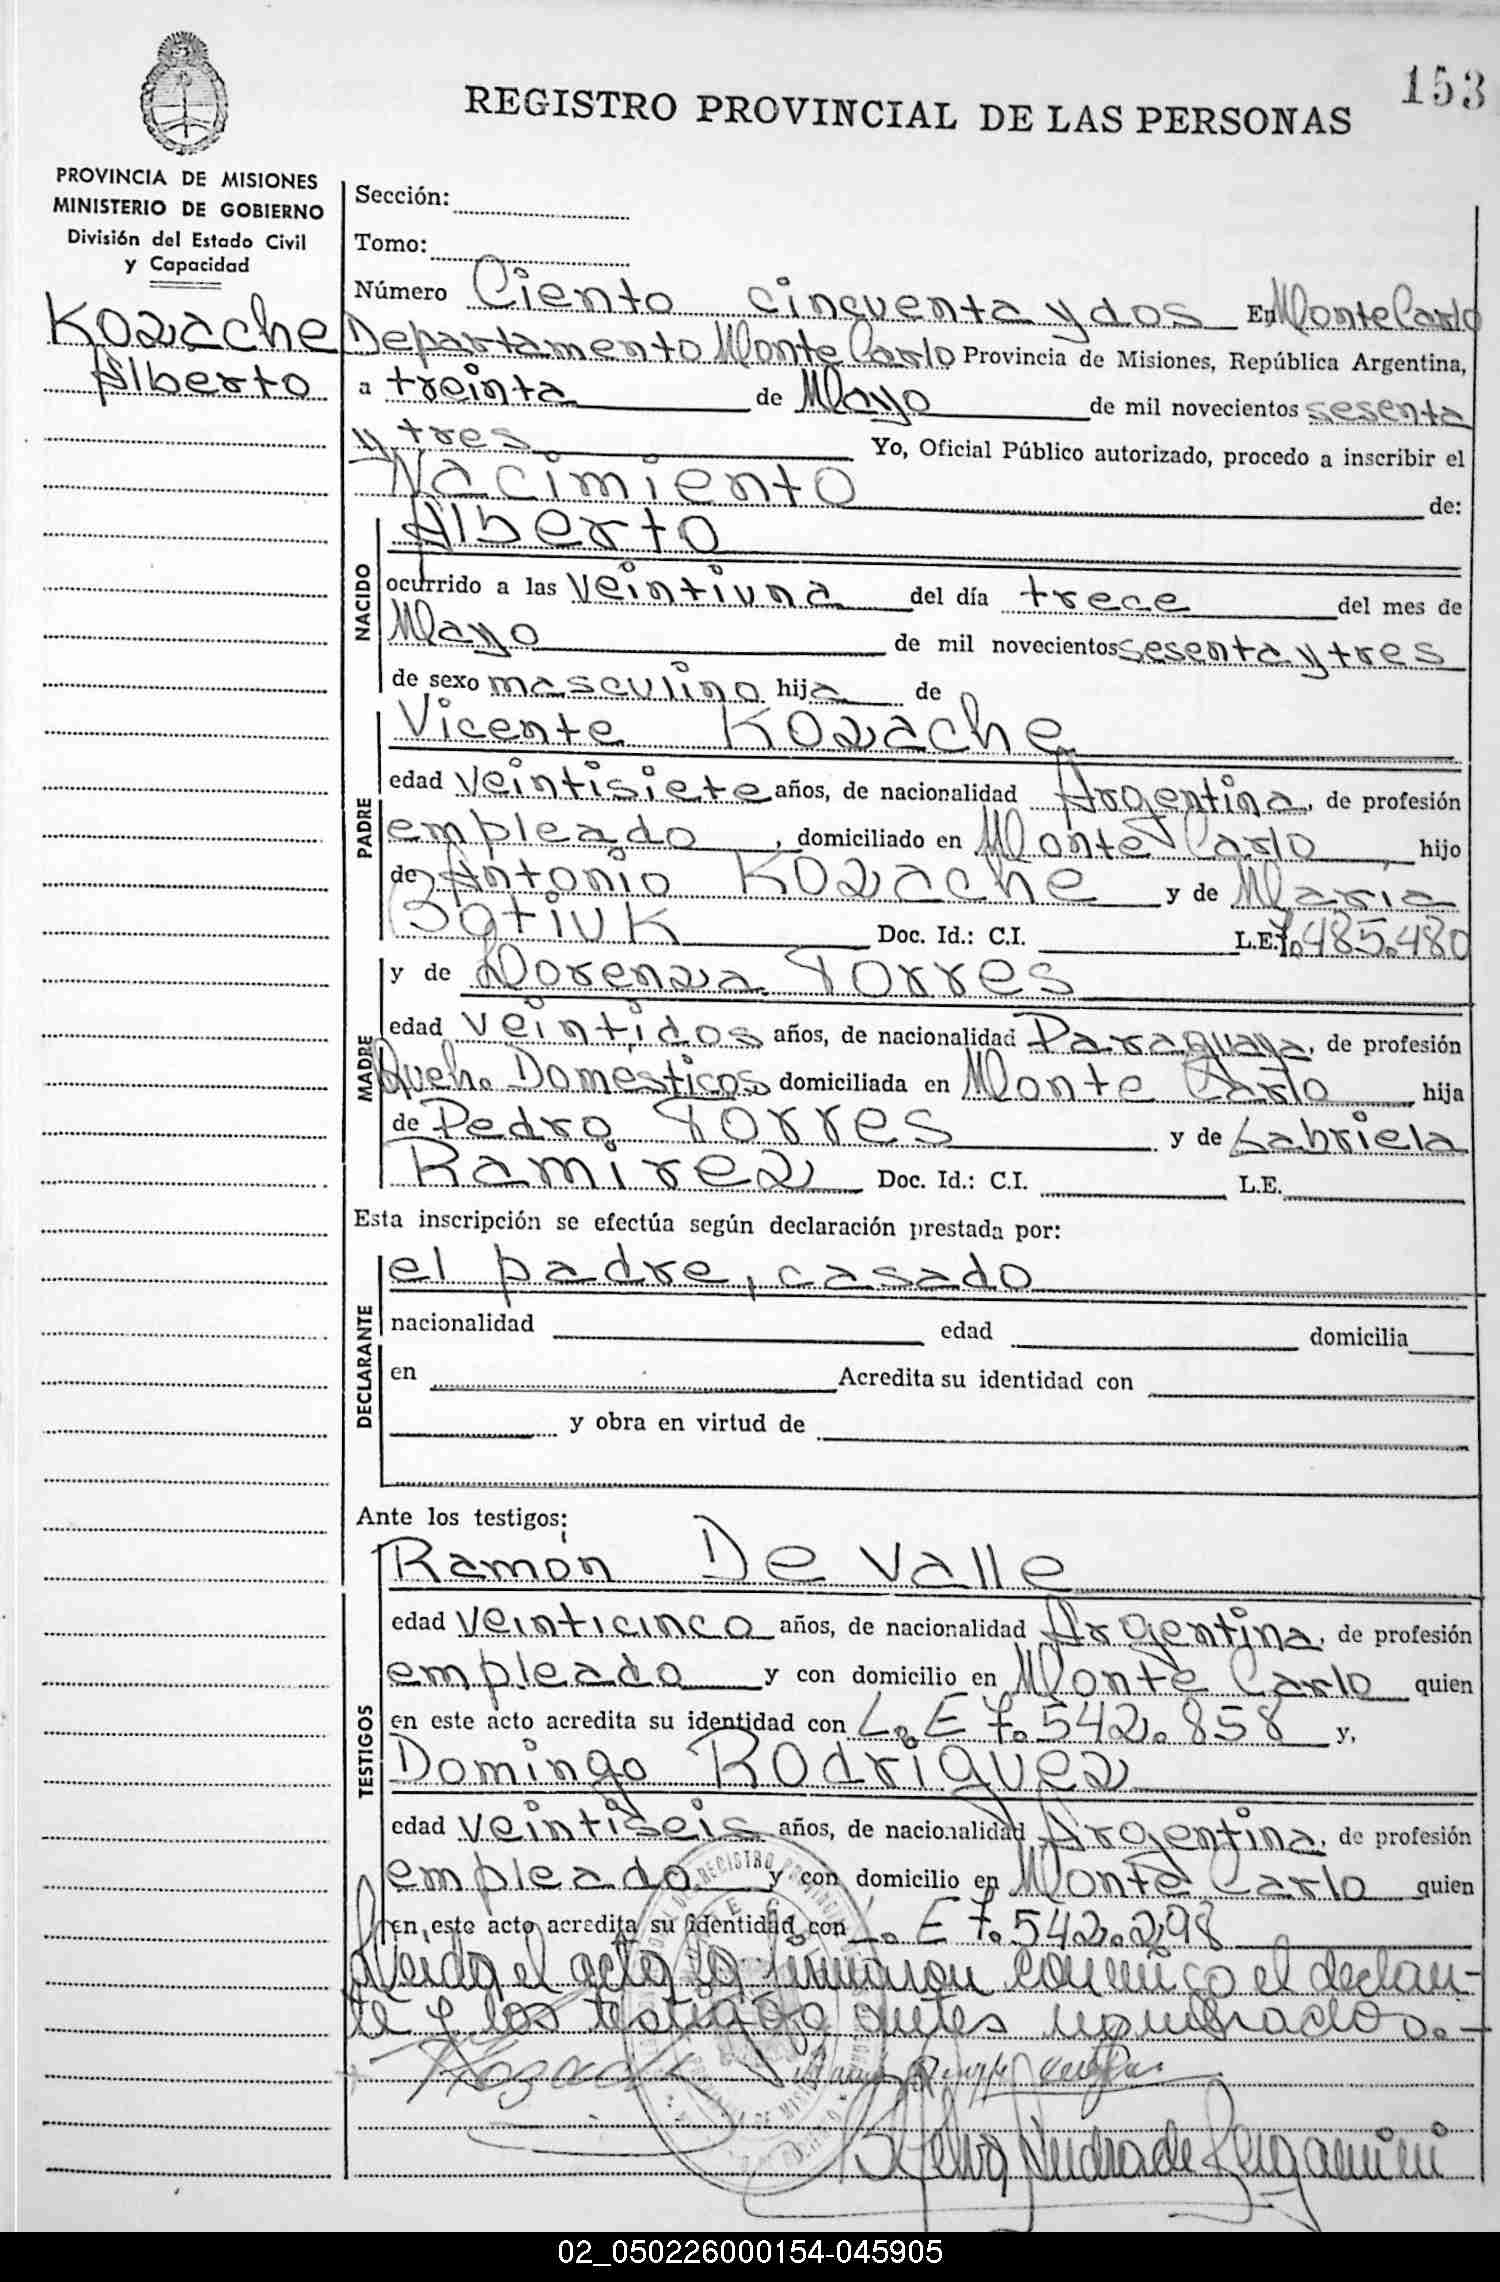 153
REGISTRO PROVINCIAL DE LAS PERSONAS
PROVINCIA DE MISIONES
MINISTERIO DE GOBIERNO
División del Estado Civil
y Capacidad
Kozache
Alberto
Sección:
Tomo:
Número Ciento cincuenta y dos En Monte Carlo
Departamento Monte Carlo Provincia de Misiones, República Argentina,
a treinta de Mayo de mil novecientos sesenta
y tres Yo, Oficial Público autorizado, procedo a inscribir el
Nacimiento de:
NACIDO
Alberto
ocurrido a las veintiuna del día trece del mes de
Mayo de mil novecientos sesenta y tres
de sexo masculino hija de
PADRE
Vicente Kozache
edad veintisiete años, de nacionalidad Argentina, de profesión
empleado, domiciliado en Monte Carlo, hijo
de Antonio Kozache y de Maria
Batiuk Doc. Id.: C.I. L.E. 7.485.480
MADRE
y de Lorenza Torres
edad veintidos años, de nacionalidad Paraguaya, de profesión
Queh. Domésticos domiciliada en Monte Carlo, hija
de Pedro Torres y de Gabriela
Ramirez Doc. Id.: C.I. L.E.
Esta inscripción se efectúa según declaración prestada por:
DECLARANTE
el padre, casado
nacionalidad edad domicilia
en Acredita su identidad con
y obra en virtud de
Ante los testigos:
TESTIGOS
Ramón De Valle
edad veinticinco años, de nacionalidad Argentina, de profesión
empleado y con domicilio en Monte Carlo quien
en este acto acredita su identidad con L. E 7.542.858 y,
Domingo Rodriguez
edad veintiseis años, de nacionalidad Argentina, de profesión
empleado y con domicilio en Monte Carlo quien
en este acto acredita su identidad con L. E 7.542.298
Leida el acta la firmaron conmigo el declaran-
te y los testigos antes nombrados.-
02_050226000154-045905